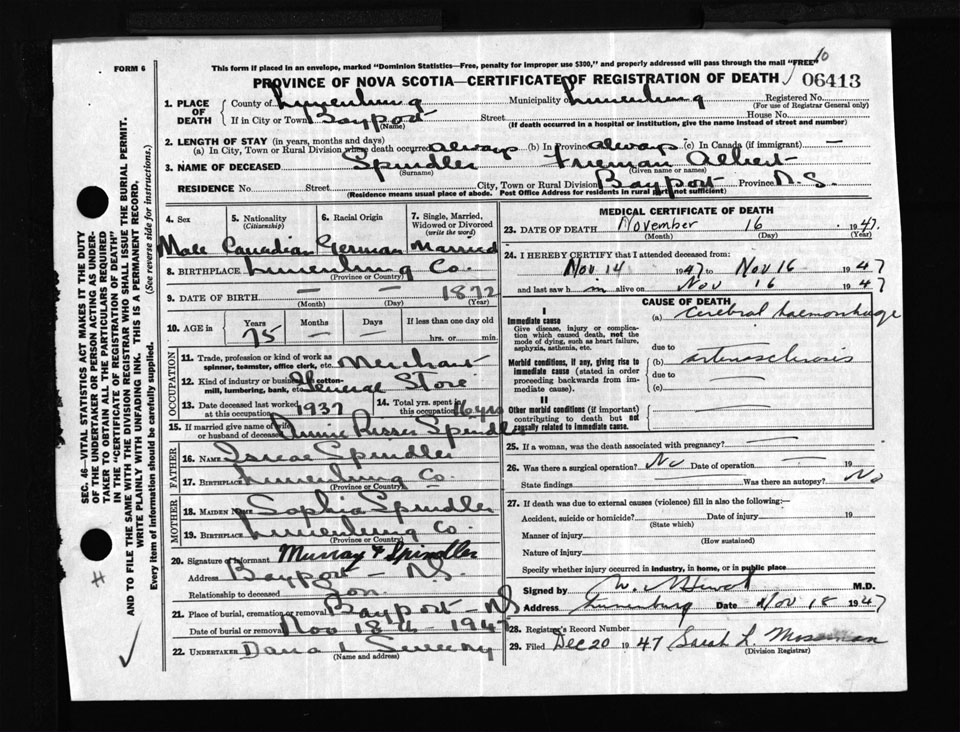 10
FORM 6
This form if placed in an envelope, marked "Dominion Statistics—Free, penalty for improper use $300," and properly addressed will pass through the mail "FREE"
PROVINCE OF NOVA SCOTIA—CERTIFICATE OF REGISTRATION OF DEATH 06413
1. PLACE OF DEATH
County of Lunenburg Municipality of Lunenburg Registered No.
(For use of Registrar General only)
If in City or Town Bayport Street House No.
(Name) (If death occurred in a hospital or institution, give the name instead of street and number)
2. LENGTH OF STAY (in years, months and days)
(a) In City, Town or Rural Division where death occurred always (b) In Province always (c) In Canada (if immigrant) —
3. NAME OF DECEASED Spindler Freeman Albert
(Surname) (Given name or names)
RESIDENCE No. Street City, Town or Rural Division Bayport Province N.S.
(Residence means usual place of abode. Post Office Address for residents in rural parts not sufficient)
4. Sex 5. Nationality (Citizenship) 6. Racial Origin 7. Single, Married, Widowed or Divorced (write the word)
Male Canadian German Married
8. BIRTHPLACE Lunenburg Co.
(Province or Country)
9. DATE OF BIRTH — — 1872
(Month) (Day) (Year)
10. AGE in Years Months Days If less than one day old
75 — hrs. or min.
OCCUPATION
11. Trade, profession or kind of work as spinner, teamster, office clerk, etc. Merchant
12. Kind of industry or business, cotton-mill, lumbering, bank, etc. General Store
13. Date deceased last worked at this occupation 1937 14. Total yrs. spent in this occupation 16 yrs
15. If married give name of wife or husband of deceased Annie Risser Spindler
FATHER
16. Name Isaac Spindler
17. Birthplace Lunenburg Co.
(Province or Country)
MOTHER
18. Maiden Name Sophia Spindler
19. Birthplace Lunenburg Co.
(Province or Country)
20. Signature of Informant Murray F Spindler
Address Bayport — N.S.
Relationship to deceased Son.
21. Place of burial, cremation or removal Bayport — NS
Date of burial or removal Nov 18th — 1947
22. UNDERTAKER Dana L Sweeny
(Name and address)
MEDICAL CERTIFICATE OF DEATH
23. DATE OF DEATH November 16 1947.
(Month) (Day) (Year)
24. I HEREBY CERTIFY that I attended deceased from
Nov 14 1947 to Nov 16 1947
and last saw h m alive on Nov 16 1947
CAUSE OF DEATH
I
Immediate cause
Give disease, injury or complication which caused death, not the mode of dying, such as heart failure, asphyxia, asthenia, etc.
(a) Cerebral haemorrhage
due to
Morbid conditions, if any, giving rise to immediate cause (stated in order proceeding backwards from immediate cause).
(b) arteriosclerosis
due to
(c)
II
Other morbid conditions (if important) contributing to death but not causally related to immediate cause.
25. If a woman, was the death associated with pregnancy? —
26. Was there a surgical operation? No Date of operation — 19
State findings — Was there an autopsy? No
27. If death was due to external causes (violence) fill in also the following:—
Accident, suicide or homicide? Date of injury 19
(State which)
Manner of injury
(How sustained)
Nature of injury
Specify whether injury occurred in industry, in home, or in public place
Signed by M.D.
Address Lunenburg Date Nov 18 1947
28. Registrar's Record Number
29. Filed Dec 20 1947 Sarah L.
(Division Registrar)
SEC. 46—VITAL STATISTICS ACT MAKES IT THE DUTY
OF THE UNDERTAKER OR PERSON ACTING AS UNDER-
TAKER TO OBTAIN ALL THE PARTICULARS REQUIRED
IN THE "CERTIFICATE OF REGISTRATION OF DEATH"
AND TO FILE THE SAME WITH THE DIVISION REGISTRAR WHO SHALL ISSUE THE BURIAL PERMIT.
WRITE PLAINLY WITH UNFADING INK. THIS IS A PERMANENT RECORD.
Every item of Information should be carefully supplied. (See reverse side for instructions.)